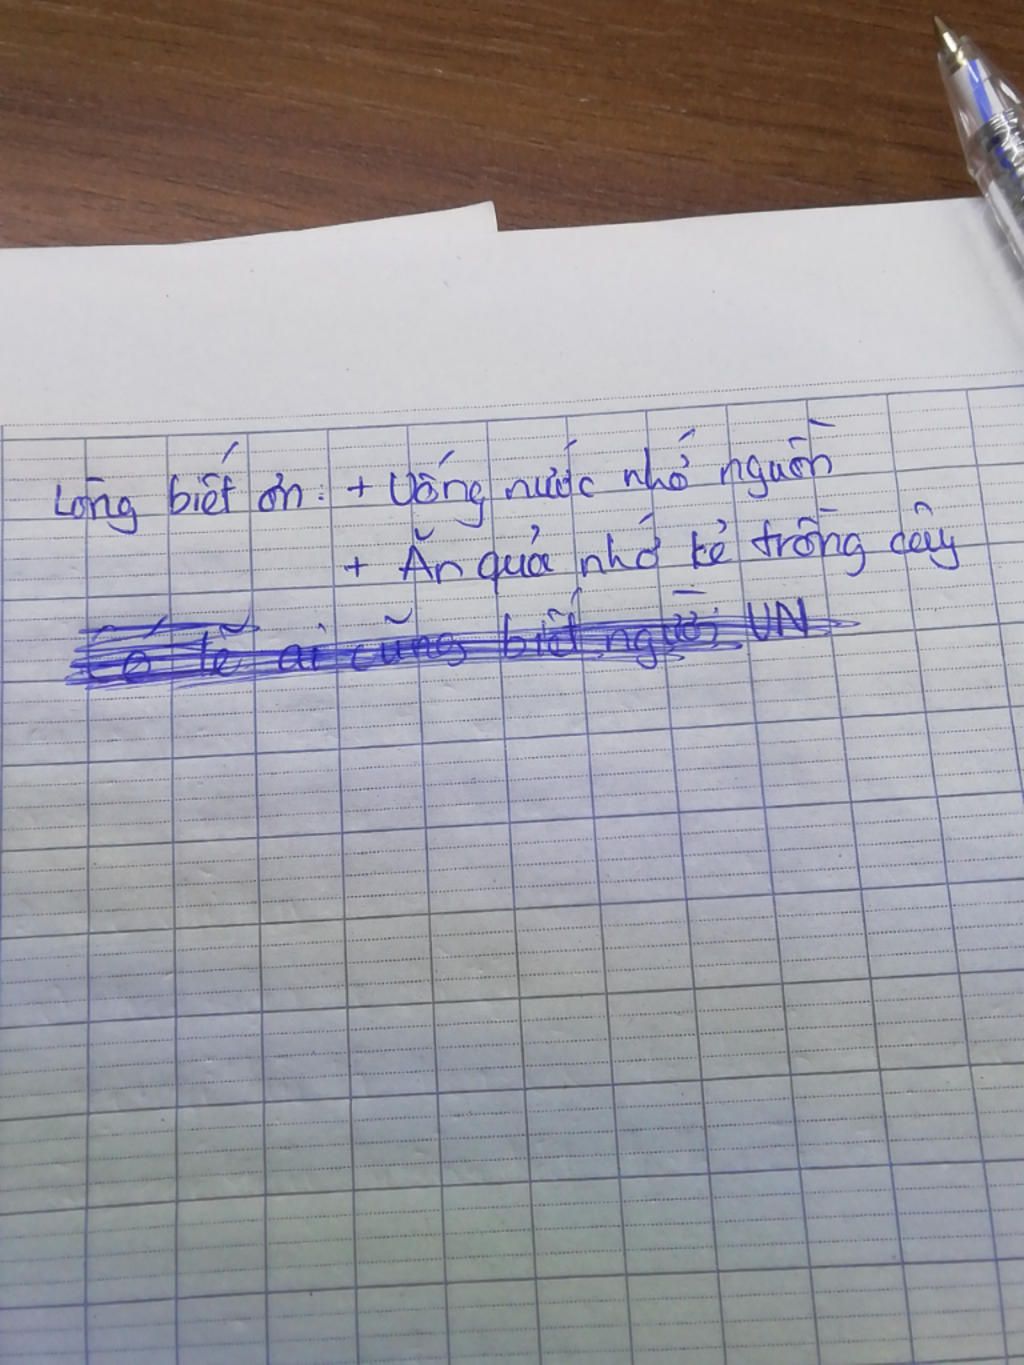 Lòng biết ơn: + Uống nước nhớ nguồn
+ Ăn quả nhớ kẻ trồng cây
Có lẽ ai cũng biết người VN